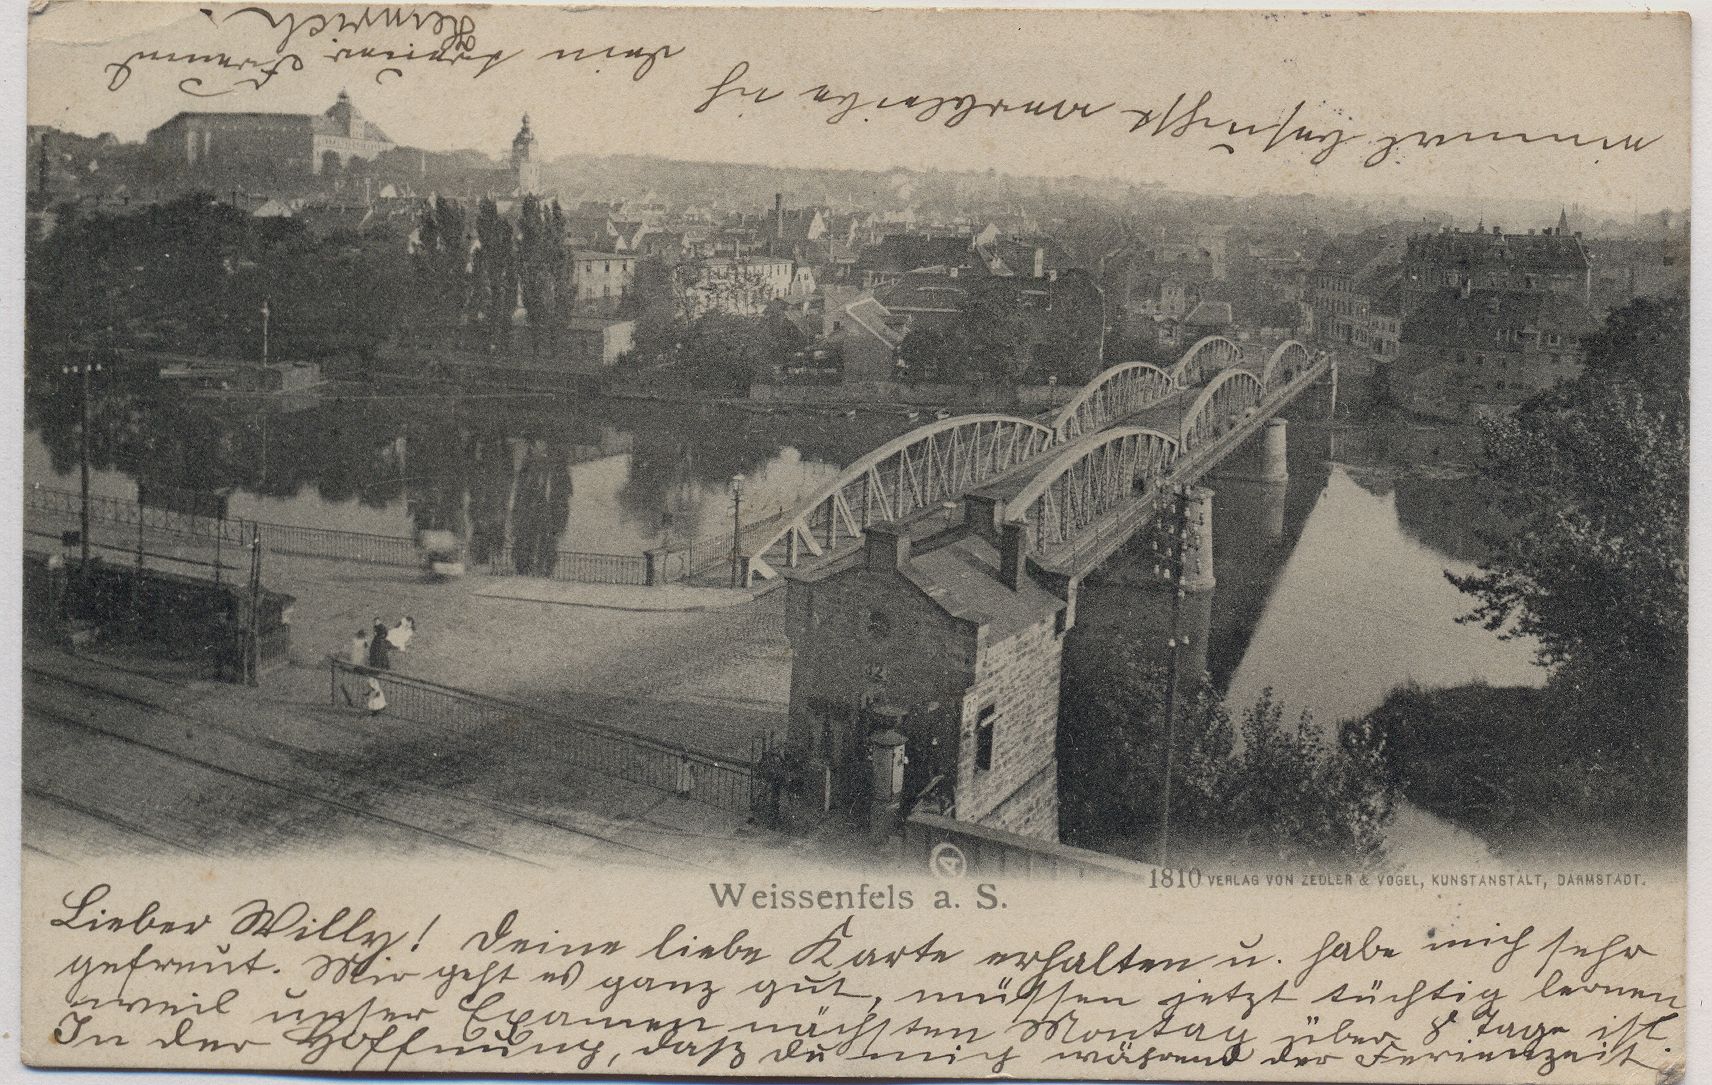 Weissenfels a. S.
1810 VERLAG VON ZEDLER & VOGEL, KUNSTANSTALT, DARMSTADT.
Lieber Willy! Deine liebe Karte erhalten u. habe mich sehr
gefreut. Mir geht es ganz gut, müssen jetzt tüchtig lernen
weil unser Examen nächsten Montag über 8 Tage ist.
In der Hoffnung, daß du mich während der Ferienzeit
einmal besuchst verbleibe ich
dein Freund
Heinrich.